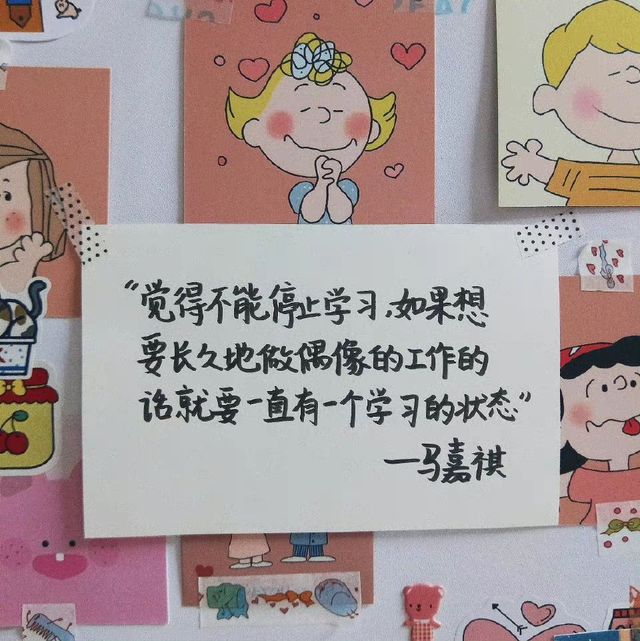 “觉得不能停止学习,如果想
要长久地做偶像的工作的
话就要一直有一个学习的状态”
—马嘉祺